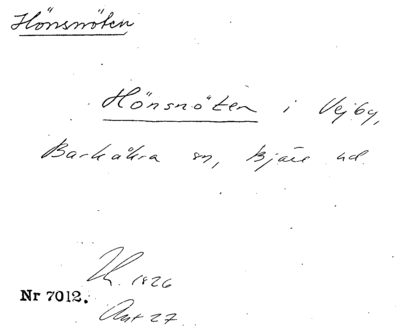 Hönsnöten
Hönsnöten i Vejby,
Barkåkra sn, Bjäre hd.
1826
Nr 7012.
27